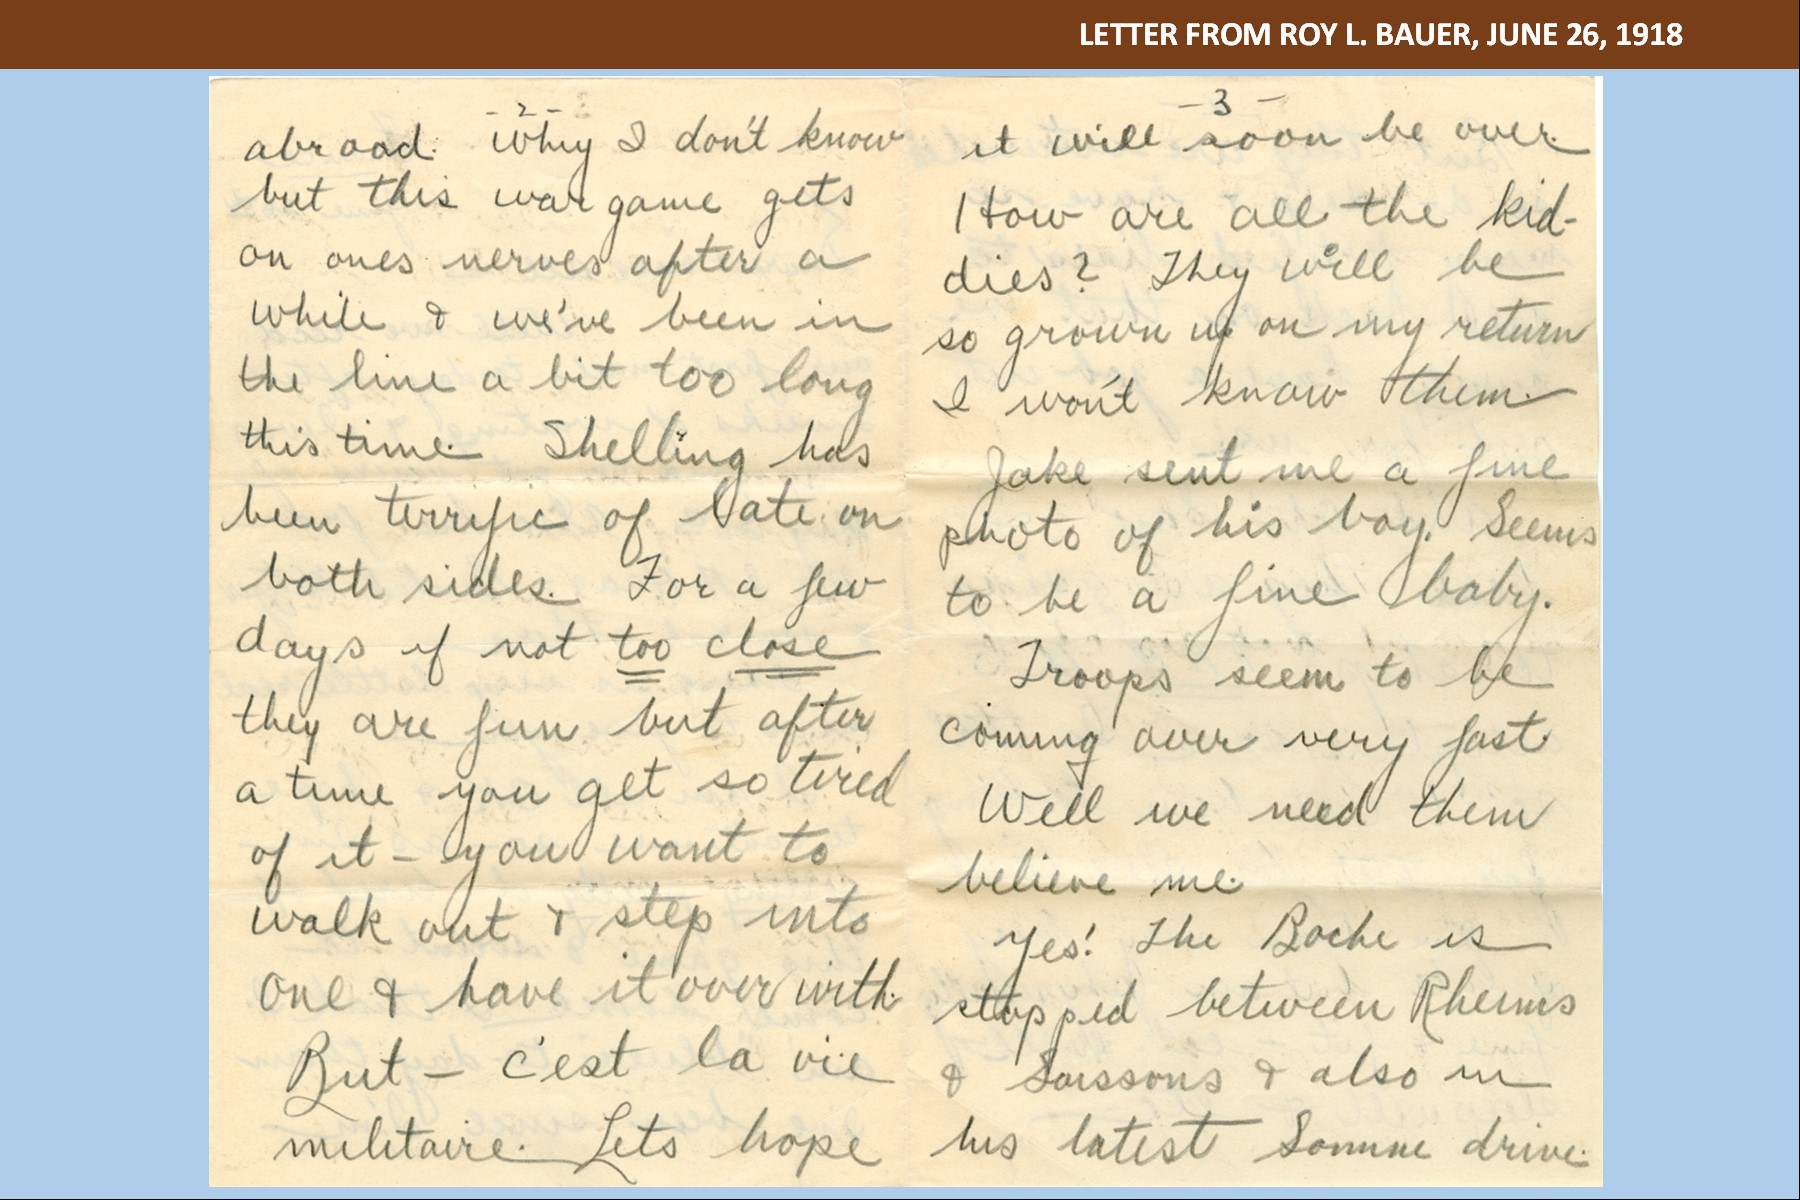 LETTER FROM ROY L. BAUER, JUNE 26, 1918
-2-
abroad. Why I don't know
but this war game gets
on ones nerves after a
while & we've been in
the line a bit too long
this time. Shelling has
been terrific of late on
both sides. For a few
days if not too close
they are fun but after
a time you get so tired
of it – you want to
walk out & step into
one & have it over with.
But – c'est la vie
militaire. Lets hope
-3-
it will soon be over.
How are all the kid-
dies? They will be
so grown up on my return
I won't know them.
Jake sent me a fine
photo of his boy. Seems
to be a fine baby.
Troops seem to be
coming over very fast
Well we need them
believe me.
Yes! The Boche is
stopped between Rheims
& Soissons & also in
his latest Somme drive.